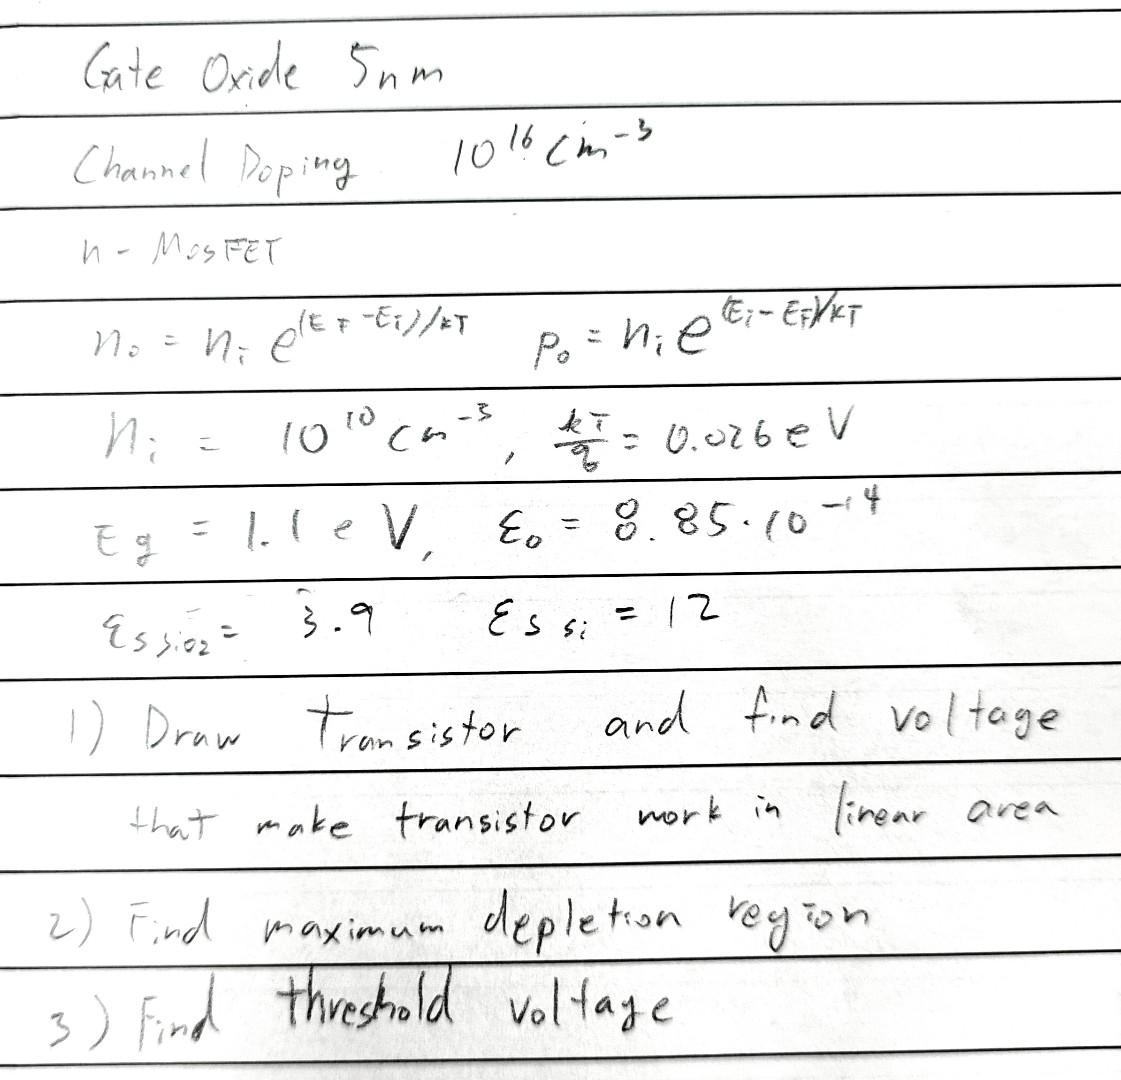 Gate Oxide 5nm
Channel Doping 10¹⁶ cm⁻³
n - MOSFET
n₀ = nᵢ e^(E_F - Eᵢ)/kT p₀ = nᵢ e^(Eᵢ - E_F)/kT
nᵢ = 10¹⁰ cm⁻³, kT/q = 0.026 eV
Eg = 1.1 eV, ε₀ = 8.85·10⁻¹⁴
εs sio₂ = 3.9 εs si = 12
1) Draw Transistor and find voltage
that make transistor work in linear area
2) Find maximum depletion region
3) Find threshold voltage